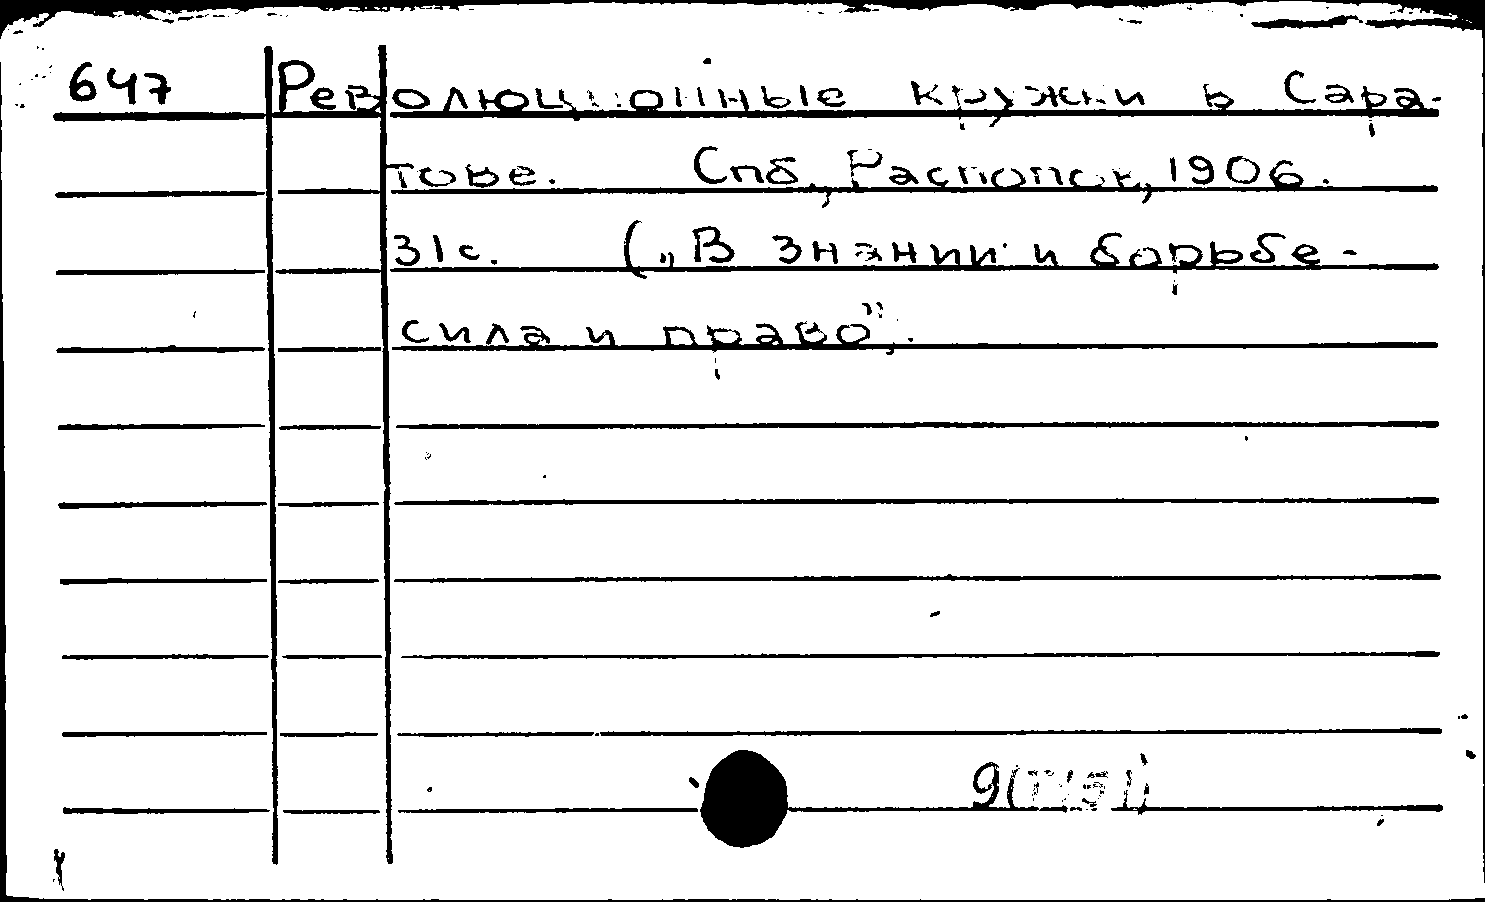 647 Революционные кружки в Сара-
тове. Спб., Распопов, 1906.
31с. („В знании и борьбе -
сила и право",.